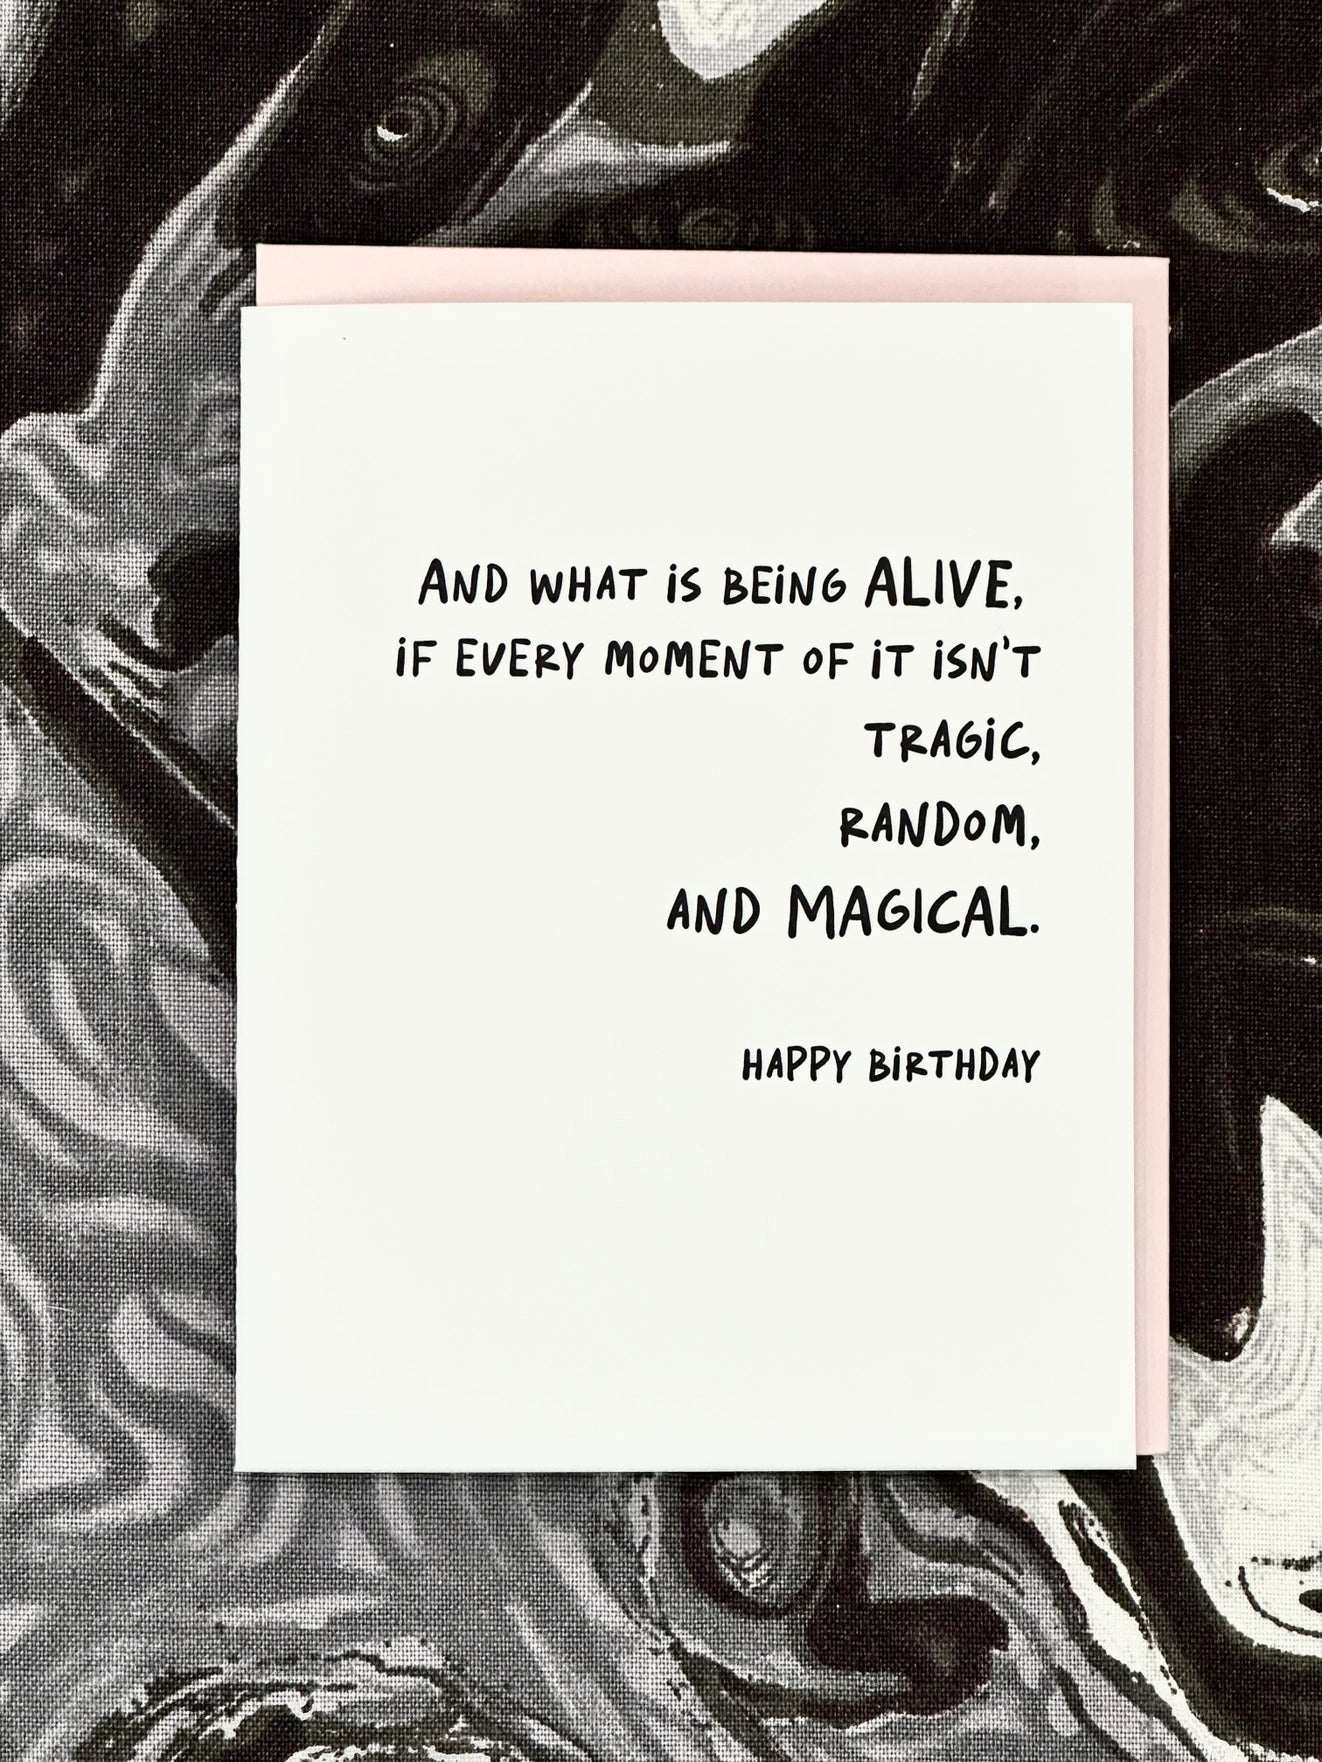 AND WHAT iS BEiNG ALIVE,
iF EVERY MOMENT OF iT iSN'T
TRAGiC,
RANDOM,
AND MAGICAL.
HAPPY BiRTHDAY